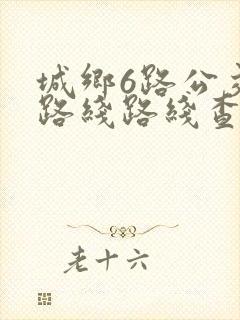 城鄉6路公交
路綫路綫查
老十六